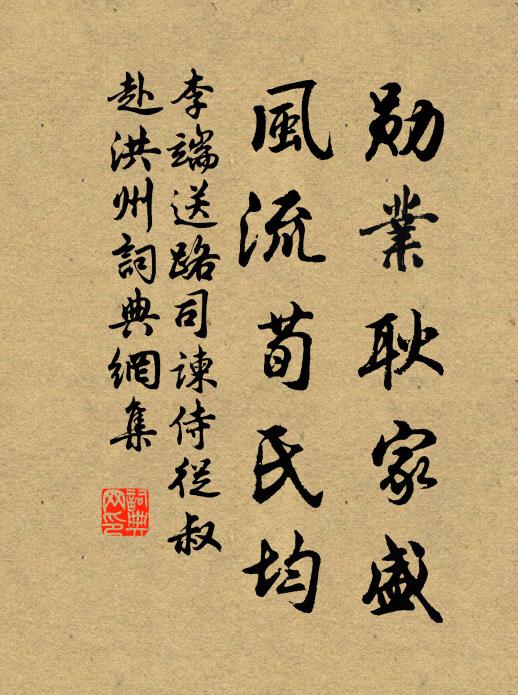 勛業耿家盛
風流荀氏均
李端送路司諫侍從叔
赴洪州詞典網集
詞典网印